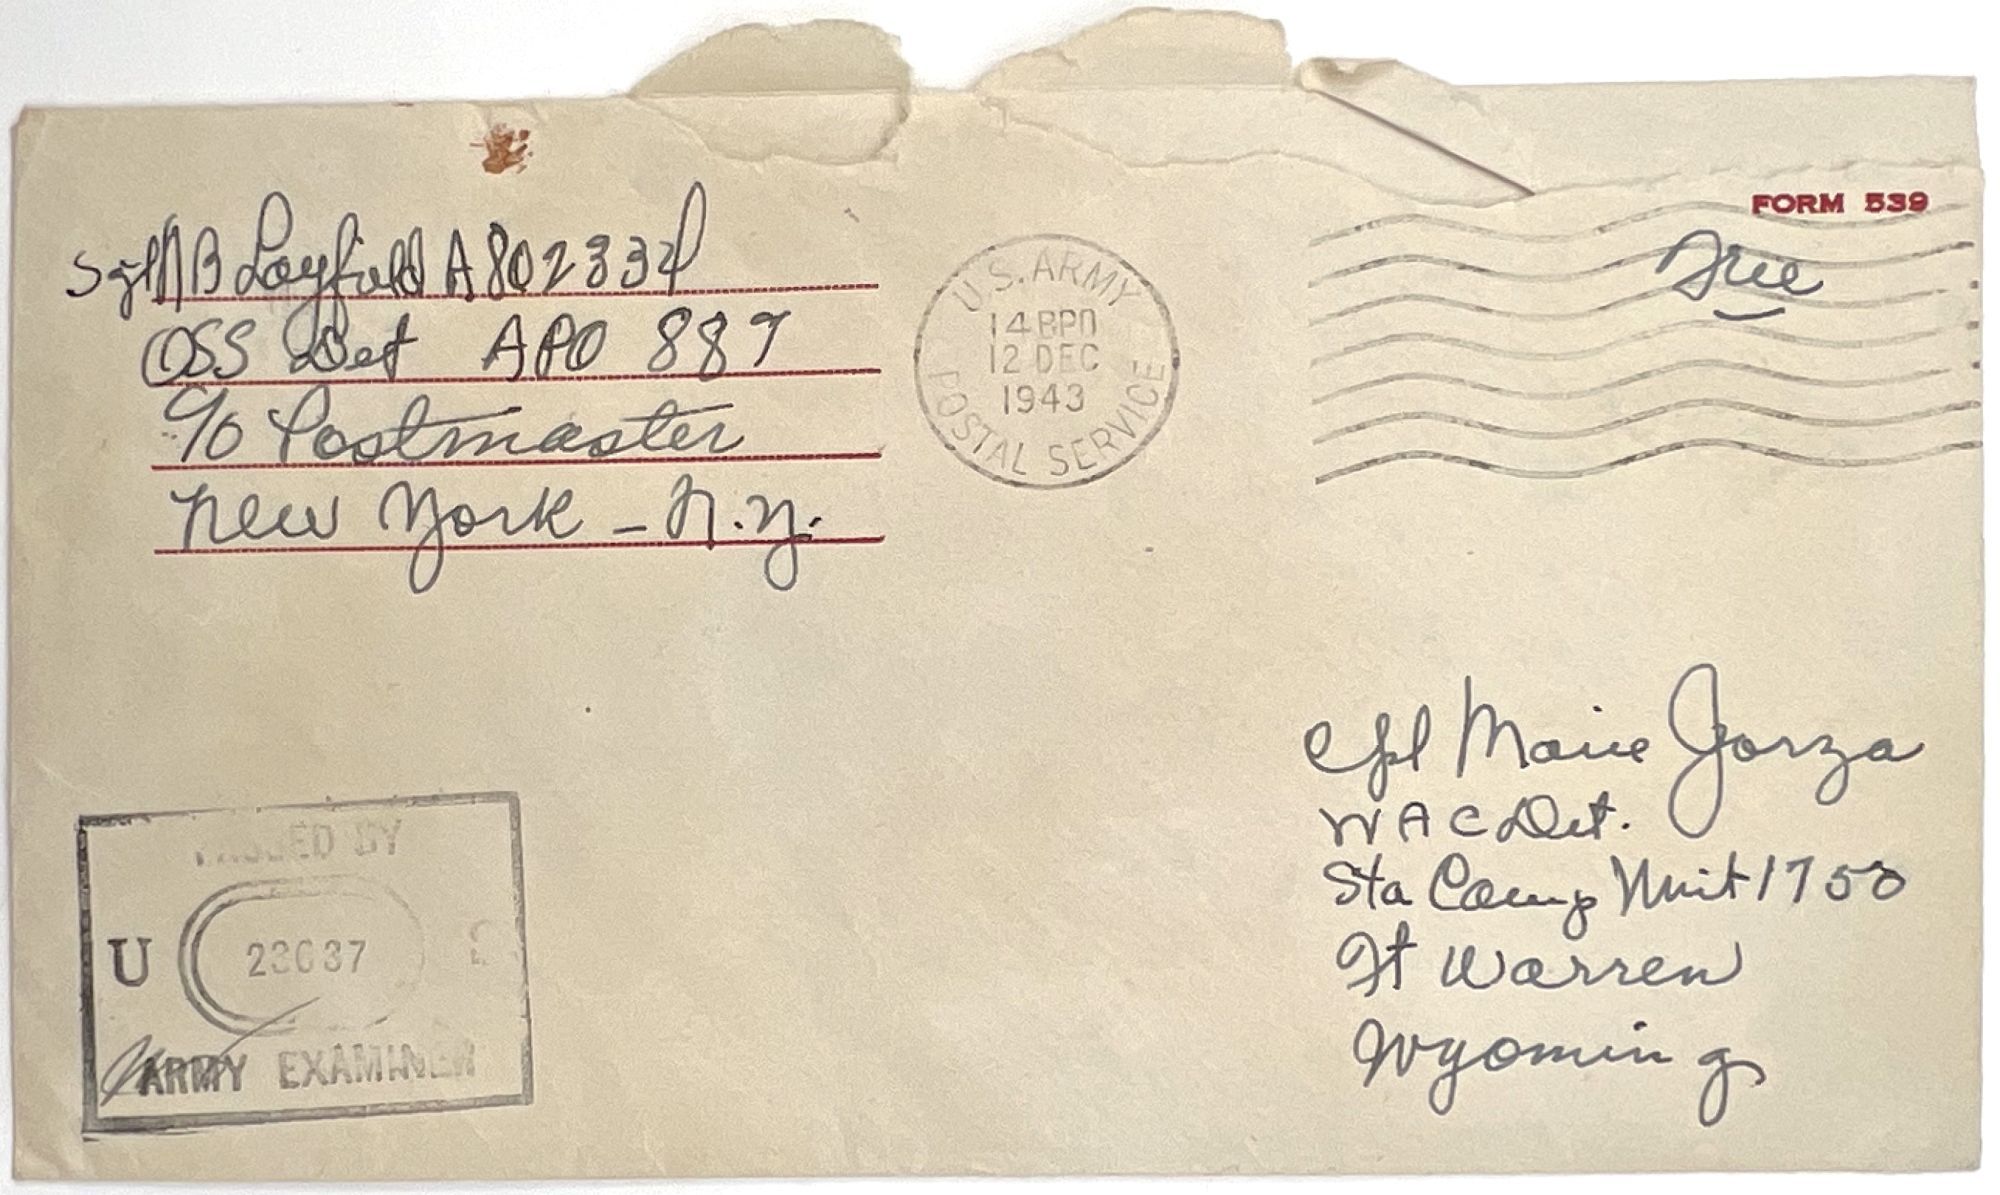 Sgt M B Layfield A802334
OSS Det APO 887
c/o Postmaster
New York - N.Y.
U.S. ARMY
14 BPO
12 DEC
1943
POSTAL SERVICE
FORM 539
Free
Cpl Marie Jorza
WAC Det.
Sta Comp Unit 1750
Ft Warren
Wyoming
PASSED BY
U S
ARMY EXAMINER